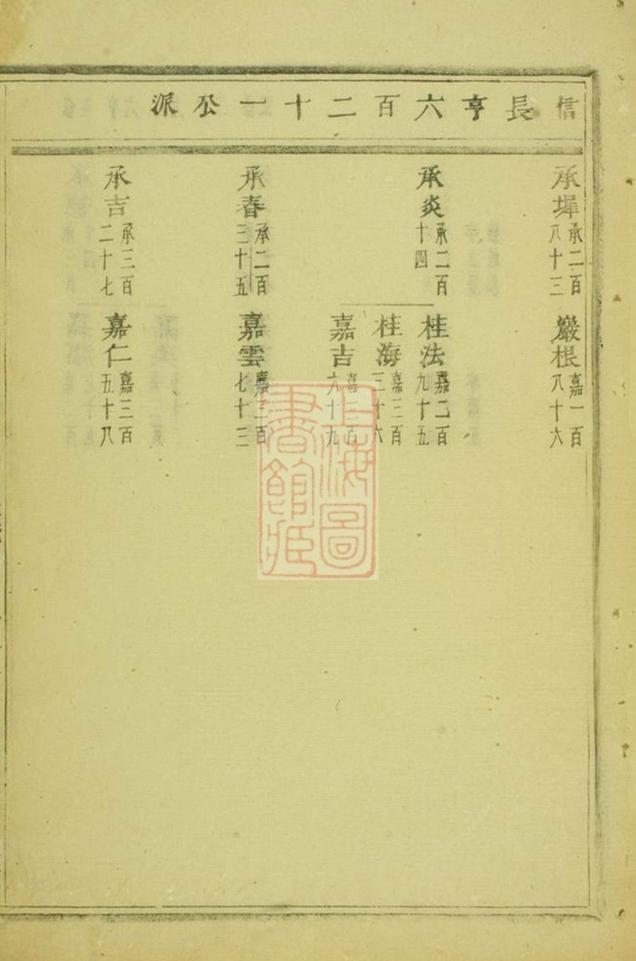 信長亨六百二十一公派
承墀 承二百八十三
巖根 嘉一百八十六
承炎 承二百十四
桂法 嘉二百九十五
桂海 嘉三百三十六
嘉吉 嘉 百六十九
承春 承二百三十五
嘉雲 嘉三百七十三
承吉 承三百二十七
嘉仁 嘉三百五十八
上海圖書館藏